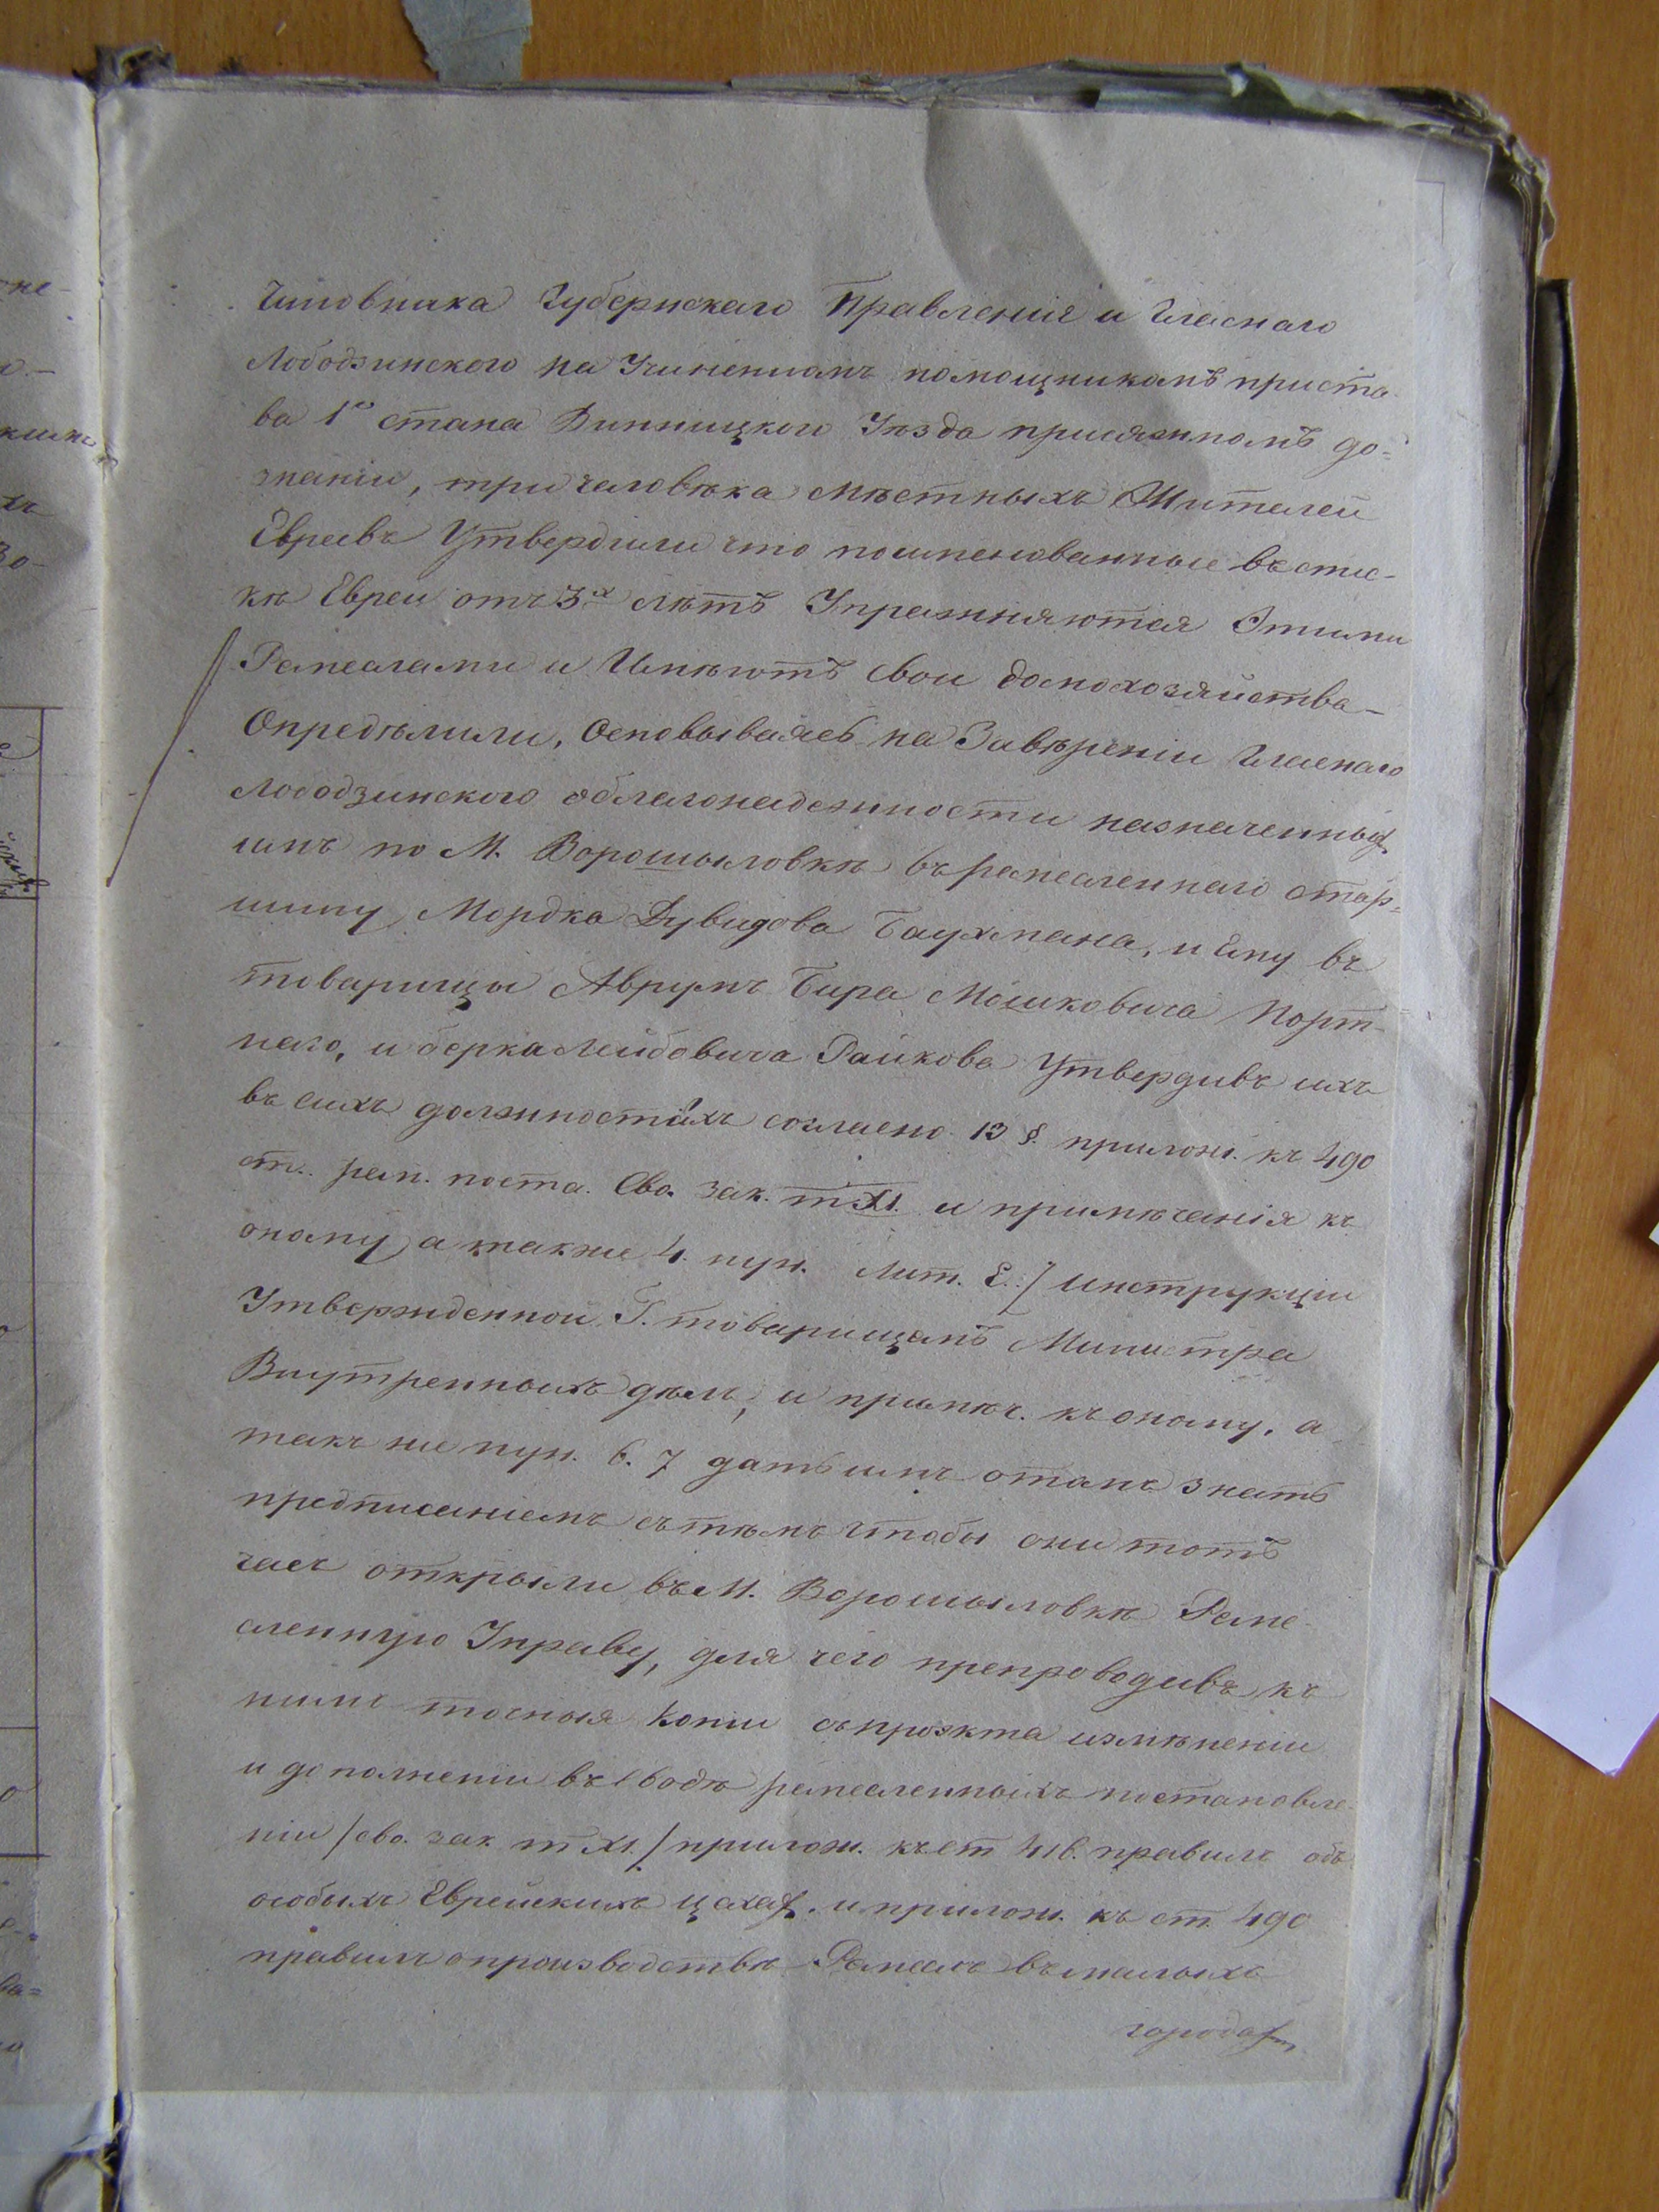 Чиновника Губернскаго Правленія и Гласнаго
Лободзинского на Учиненномъ помощникомъ приста-
ва 1го стана Винницкого Уѣзда присяжномъ до=
знаніи, три человѣка мѣстныхъ Жителей
Евреевъ Утвердили что поименованные въ спис-
кѣ Евреи отъ 3х лѣтъ Упражняются Этими
Ремеслами и Имѣютъ свои домохозяйства –
Опредѣлили, Основываясь на Завѣреніи Гласнаго
Лободзинского облагонадежности назначенных
имъ по М. Ворошыловкѣ въ ремесленнаго стар=
шину Мордка Дувидова Баухмана, и Ему въ
товарищы Аврумъ Бера Мошковича Порт-
наго, и берка Лейбовича Райкова Утвердивъ ихъ
въ сихъ должностяхъ согласно 13 §. прилож. къ 490
ст. рем. поста. Сво. зак. т XI. и примѣчанія къ
оному, а также 4. пун. Лит. Е. / Инструкціи
Утвержденной Г. товарищемъ Министра
Внутренныхъ дѣлъ, и примѣч. къ оному, а
такъ же пун. 6. 7 дать имъ отомъ знать
предписаніемъ съ тѣмъ чтобы они тотъ
часъ открыли въ М. Ворошыловкѣ Реме-
сленную Управу, для чего препроводивъ къ
нимъ точныя копіи съ проэкта измѣненіи
и дополненіи въ Сводѣ ремесленныхъ постановле-
ніи / сво. зак. т XI. / прилож. къ ст 416. правилъ объ
особыхъ Еврейскихъ цехах. и прилож. къ ст. 490
правилъ о производствѣ Ремеслъ въ малыхъ
городах